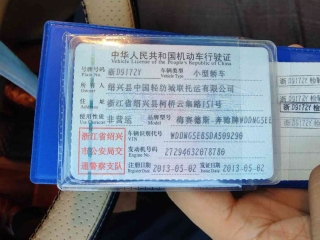 中华人民共和国机动车行驶证
Vehicle License of the People's Republic of China
号牌号码 浙D91TZY 车辆类型 小型轿车
Plate No. Vehicle Type
绍兴县中国轻纺城联托运有限公司
浙江省绍兴县柯桥云集路151号
使用性质 非营运 品牌型号 梅赛德斯-奔驰牌WDDNG5EE
浙江省绍兴
市公安局交
通警察支队
车辆识别代号
VIN
发动机号码 27294632078780
Engine No.
注册日期 2013-05-02 发证日期 2013-05-02
Register Date Issue Date
浙D91TZY
浙D91TZY